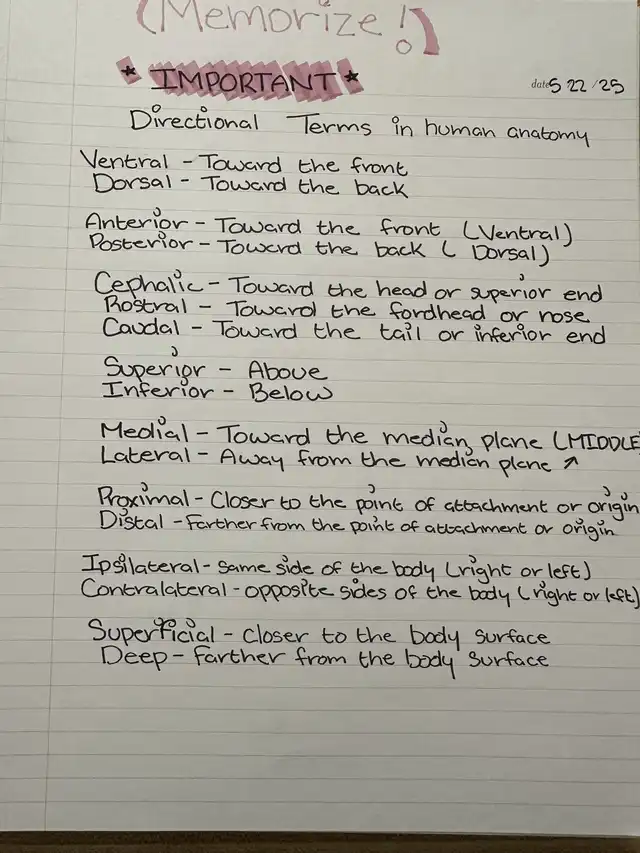 (Memorize!)
* IMPORTANT *
date 5 22 /25
Directional Terms in human anatomy
Ventral - Toward the front
Dorsal - Toward the back
Anterior - Toward the front (Ventral)
Posterior - Toward the back ( Dorsal)
Cephalic - Toward the head or superior end
Rostral - Toward the fordhead or nose
Caudal - Toward the tail or inferior end
Superior - Above
Inferior - Below
Medial - Toward the median plane (MIDDLE
Lateral - Away from the median plane ↗
Proximal - Closer to the point of attachment or origin
Distal - Farther from the point of attachment or origin
Ipsilateral - same side of the body (right or left)
Contralateral - opposite sides of the body (right or left)
Superficial - Closer to the body surface
Deep - farther from the body surface